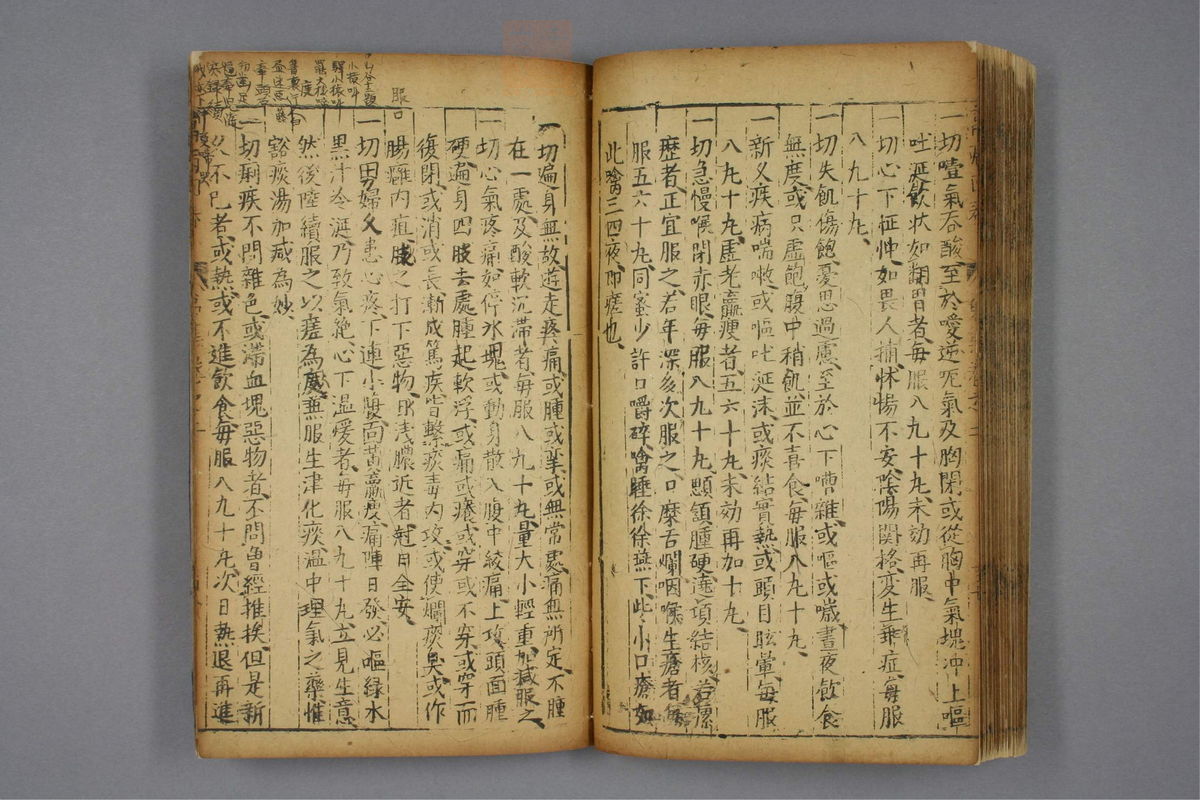 一切噫氣吞酸至於愛逆咒氣及胸閉或從胸中氣塊冲上嘔
吐延飲狀如翻胃者每服八九十丸未効再服
一切心下怔忡如畏人捕怵惕不安陰陽関格変生乖症每服
八九十丸
一切失飢傷飽憂思過慮至於心下嘈雜或嘔或噦晝夜飲食
無度或只虛飽腹中稍飢並不喜食每服八九十丸
一新久疾病喘嗽或嘔吐涎沫或痰結實熱或頭目眩暈每服
八九十丸虛老羸瘦者五六十丸未効再加十丸
一切急慢喉閉赤眼每服八九十丸顋頷腫硬遶項結核若瘰
癧者正宜服之若年深多次服之口糜舌爛咽喉生瘡者每
服五六十丸同蜜少許口嚼碎噙睡徐徐嚥下此小口瘡如
此噙三四夜即瘥也
一切遍身無故遊走疼痛或腫或攣或無常患痛無所定不腫
在一處及酸軟沉滯者每服八九十丸量大小輕重加减服之
一切心氣疼痛如停氷塊或動身散入腹中絞痛上攻頭面腫
硬遍身四肢去處腫起軟浮或痛或癢或穿或不穿或穿而
復閉或消或長漸成篤疾皆繫痰毒内攻或使爛痰臭或作
腸癰内疽服之打下惡物即浅膿近者尅日全安
一切男婦久患心疼下連小腹面黄羸瘦痛陣日發必嘔緑水
黒汁冷涎乃致氣絶心下温愛者每服八九十丸立見生意
然後陸續服之以瘥為度兼服生津化痰温中理氣之藥惟
豁痰湯加减為妙
一切痢疾不問雜色或滯血塊惡物者不問曽經推挨但是新
久不已者或熱或不進飲食每服八九十丸次日熱退再進